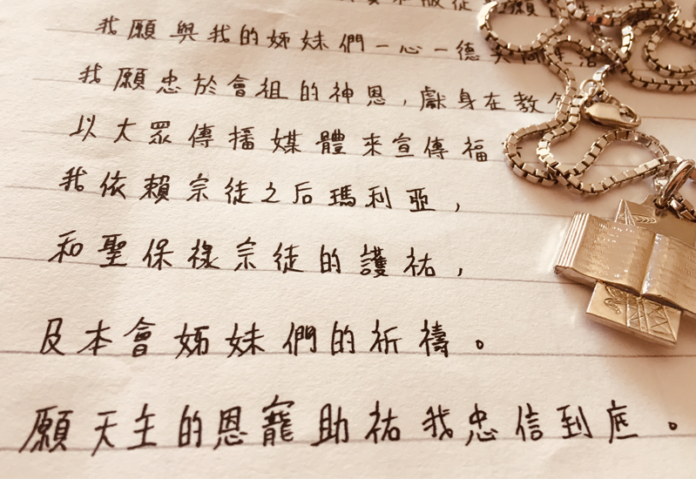 我願與我的姊妹們一心一德
我願忠於會祖的神恩,獻身在教
以大眾傳播媒體來宣傳福
我依賴宗徒之后瑪利亞,
和聖保祿宗徒的護祐,
及本會姊妹們的祈禱。
願天主的恩寵助祐我忠信到底。